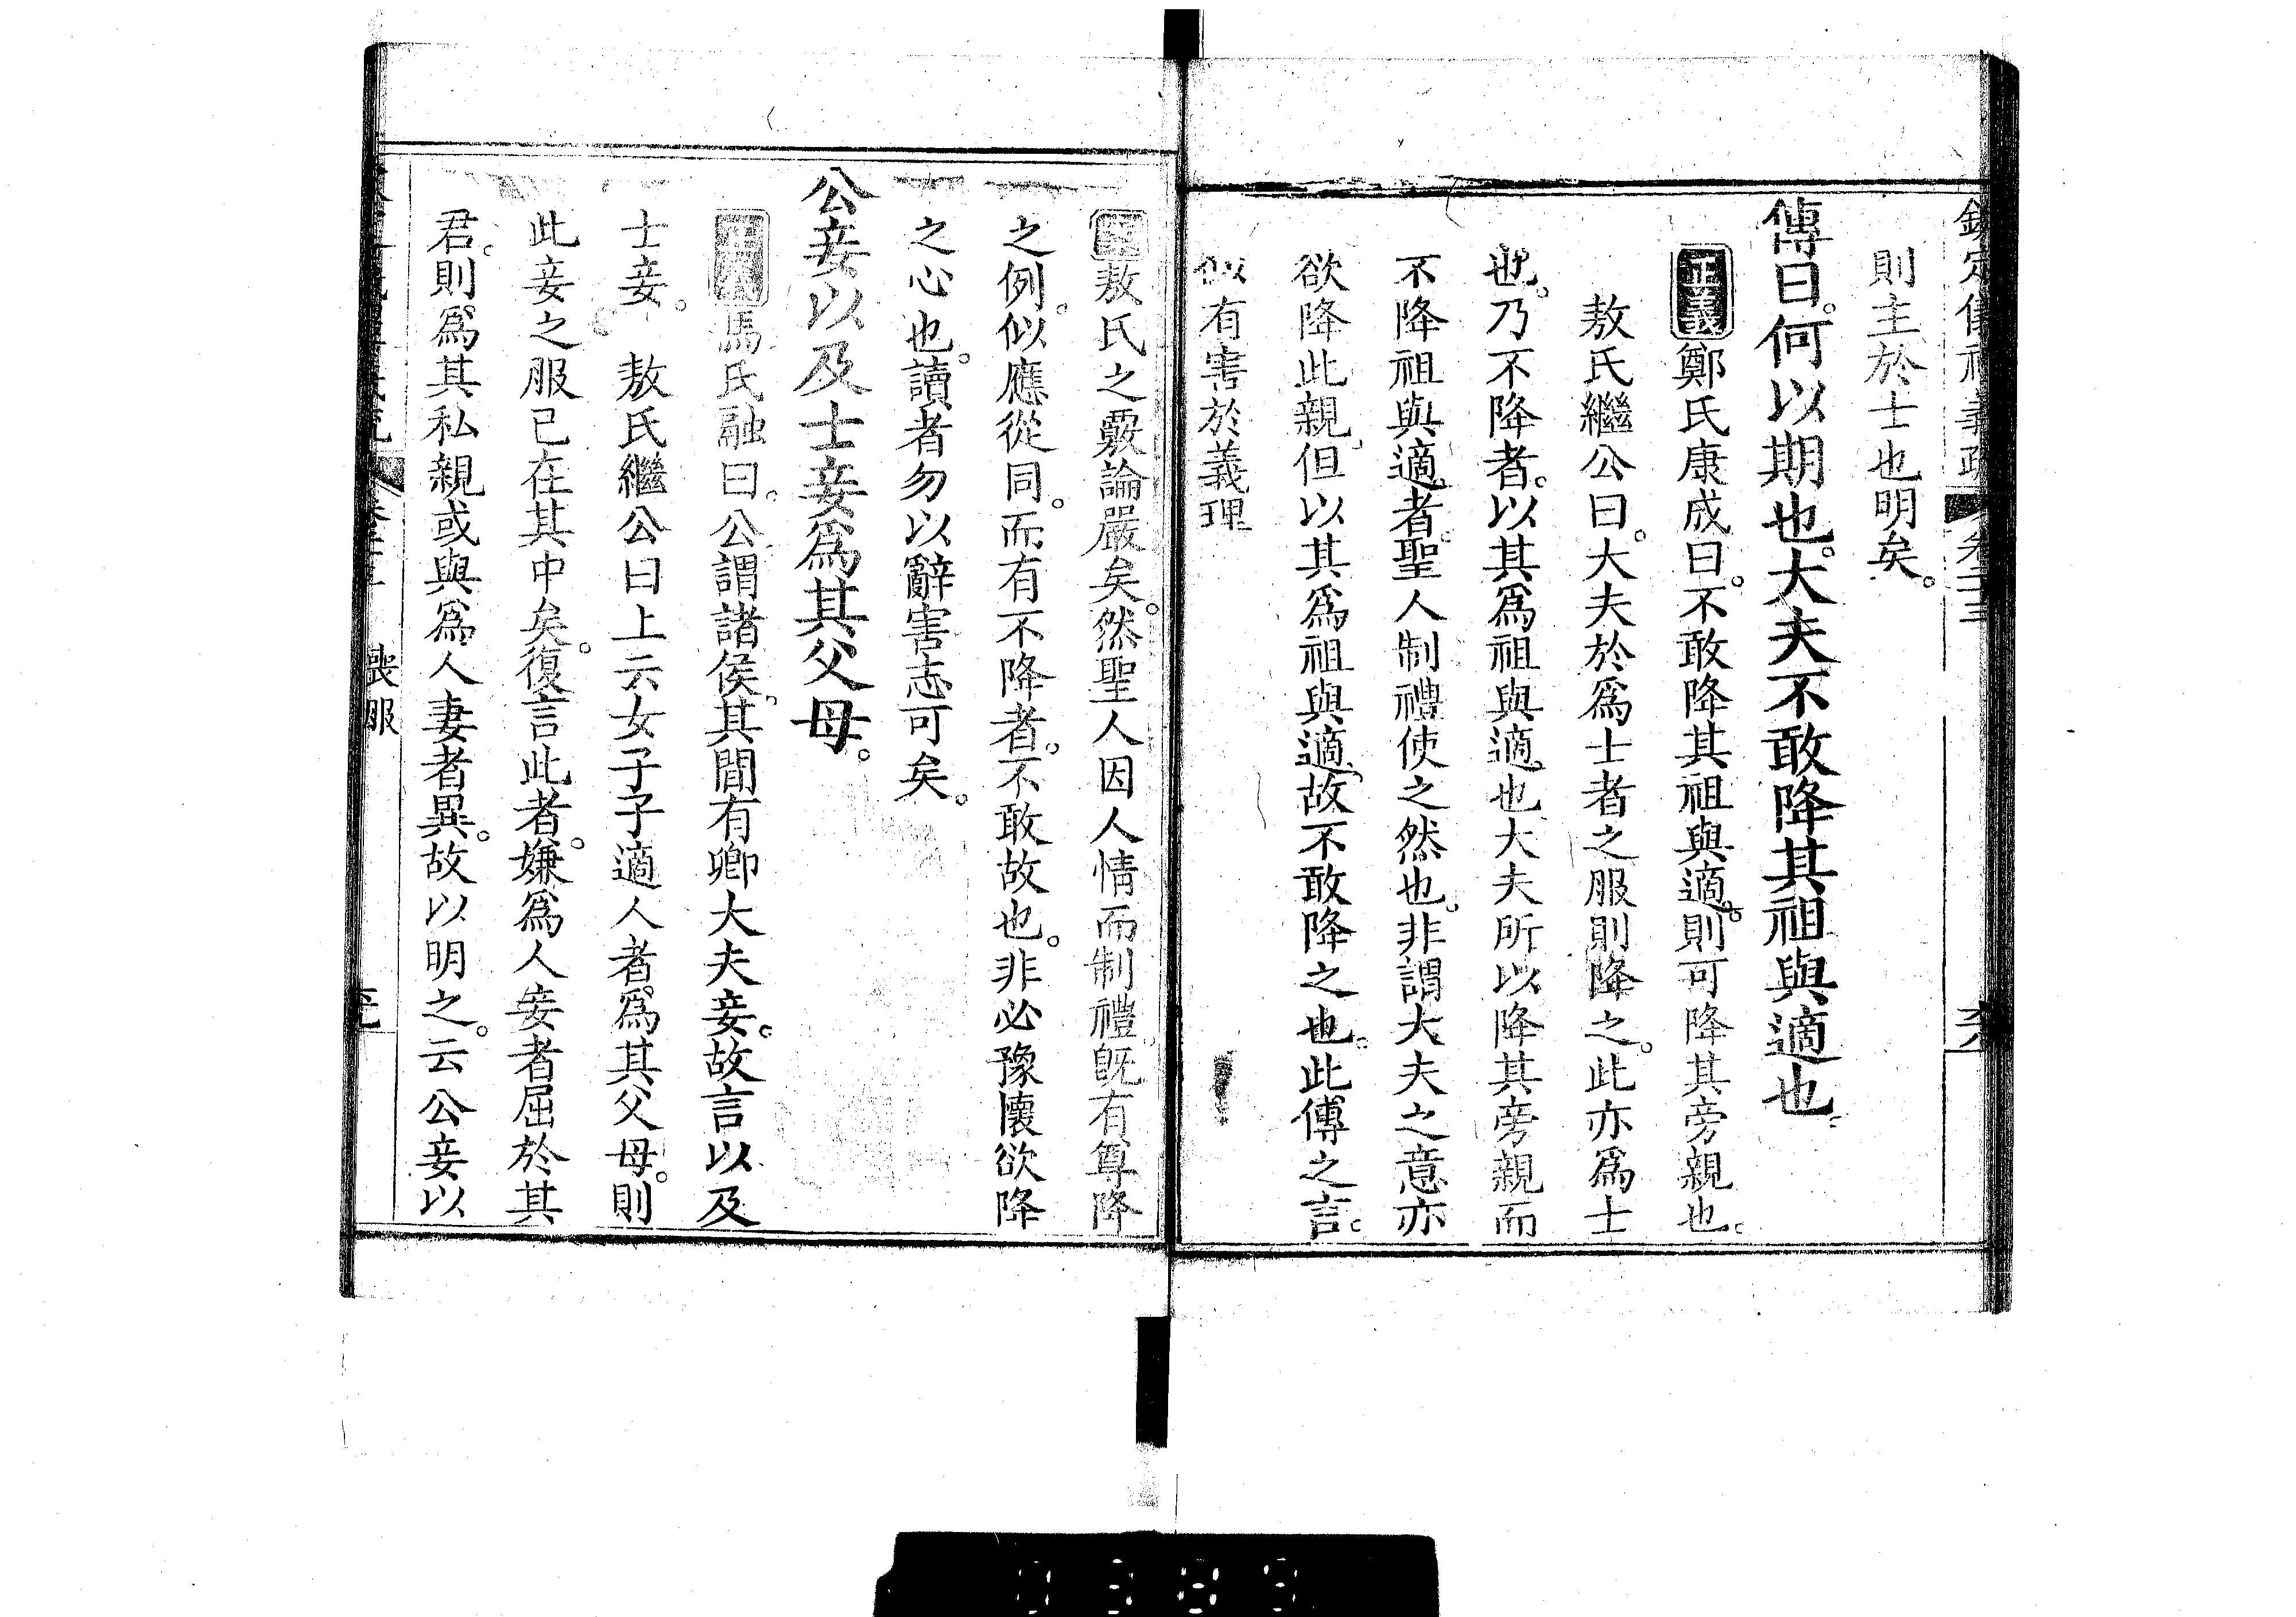 欽定儀禮義疏 卷二十三 六
則主於士也明矣。
傳曰。何以期也。大夫不敢降其祖與適也。
正義鄭氏康成曰。不敢降其祖與適。則可降其旁親也。
敖氏繼公曰。大夫於為士者之服則降之。此亦為士
也。乃不降者。以其為祖與適也大夫所以降其旁親而
不降祖與適者。聖人制禮使之然也。非謂大夫之意亦
欲降此親。但以其為祖與適。故不敢降之也。此傳之言。
似有害於義理
敖氏之覈論嚴矣。然聖人因人情而制禮。旣有尊降
之例。似應從同。而有不降者。不敢故也。非必豫懷欲降
之心也。讀者勿以辭害志可矣。
公妾以及士妾為其父母。
正義馬氏融曰。公謂諸侯。其間有卿大夫妾。故言以及
士妾。 敖氏繼公曰上云女子子適人者。為其父母。則
此妾之服已在其中矣。復言此者。嫌為人妾者屈於其
君。則為其私親或與為人妻者異。故以明之。云公妾以
喪服